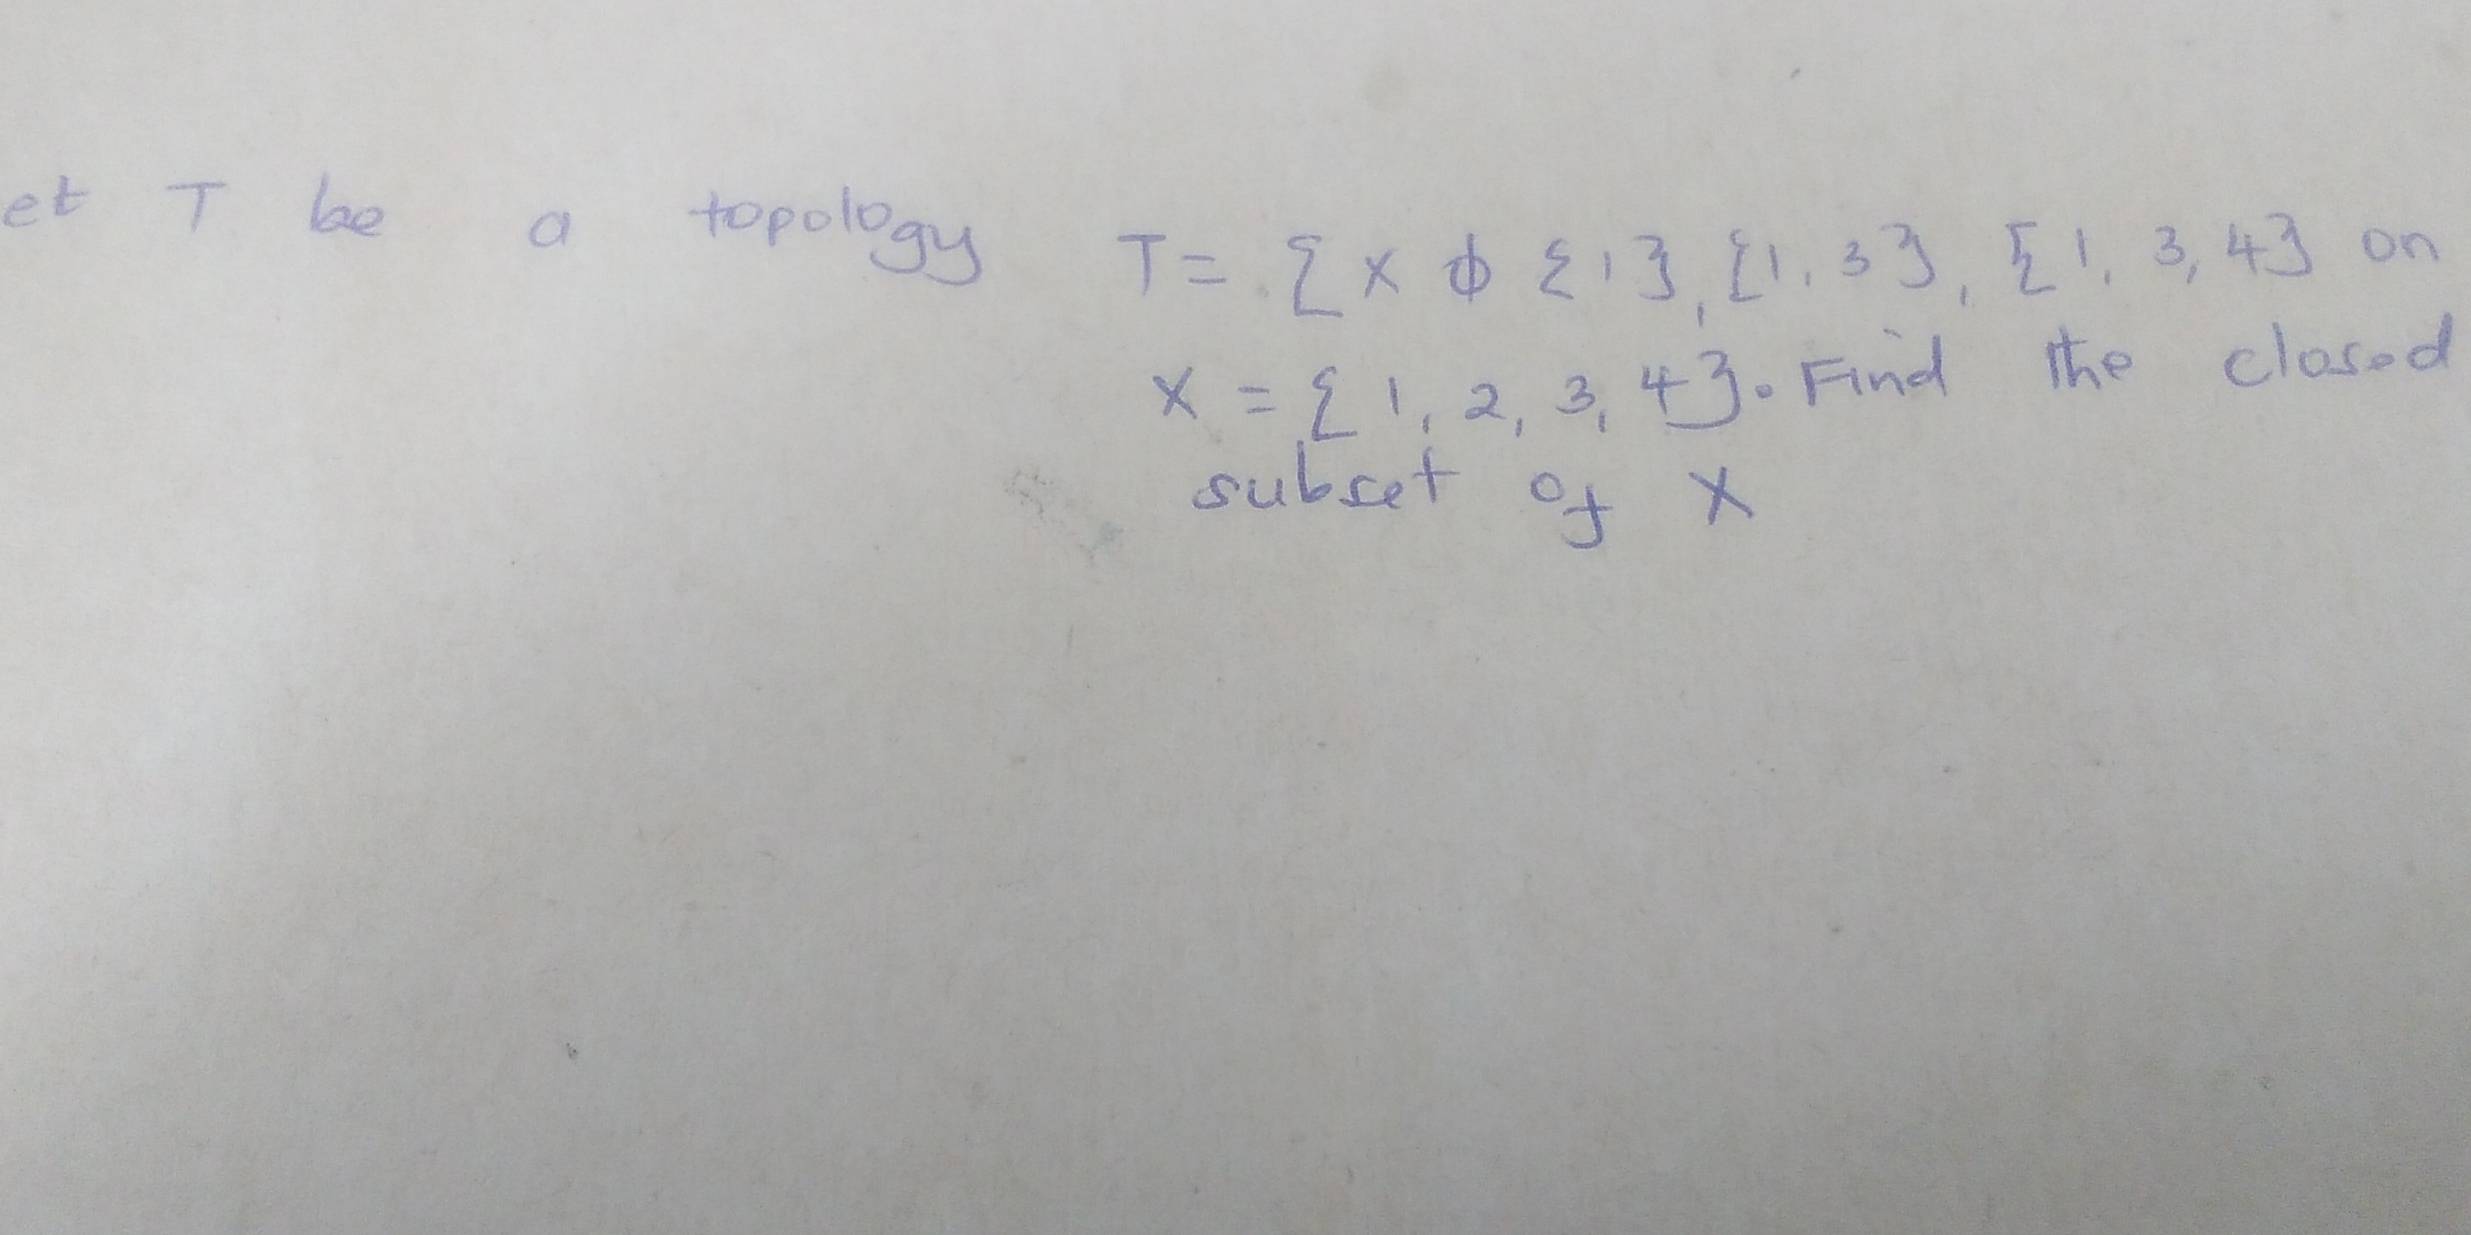 et T be a topology T= {X ϕ {1}, {1, 3}, {1, 3, 4} on
X = {1, 2, 3, 4}. Find the closed
subset of X